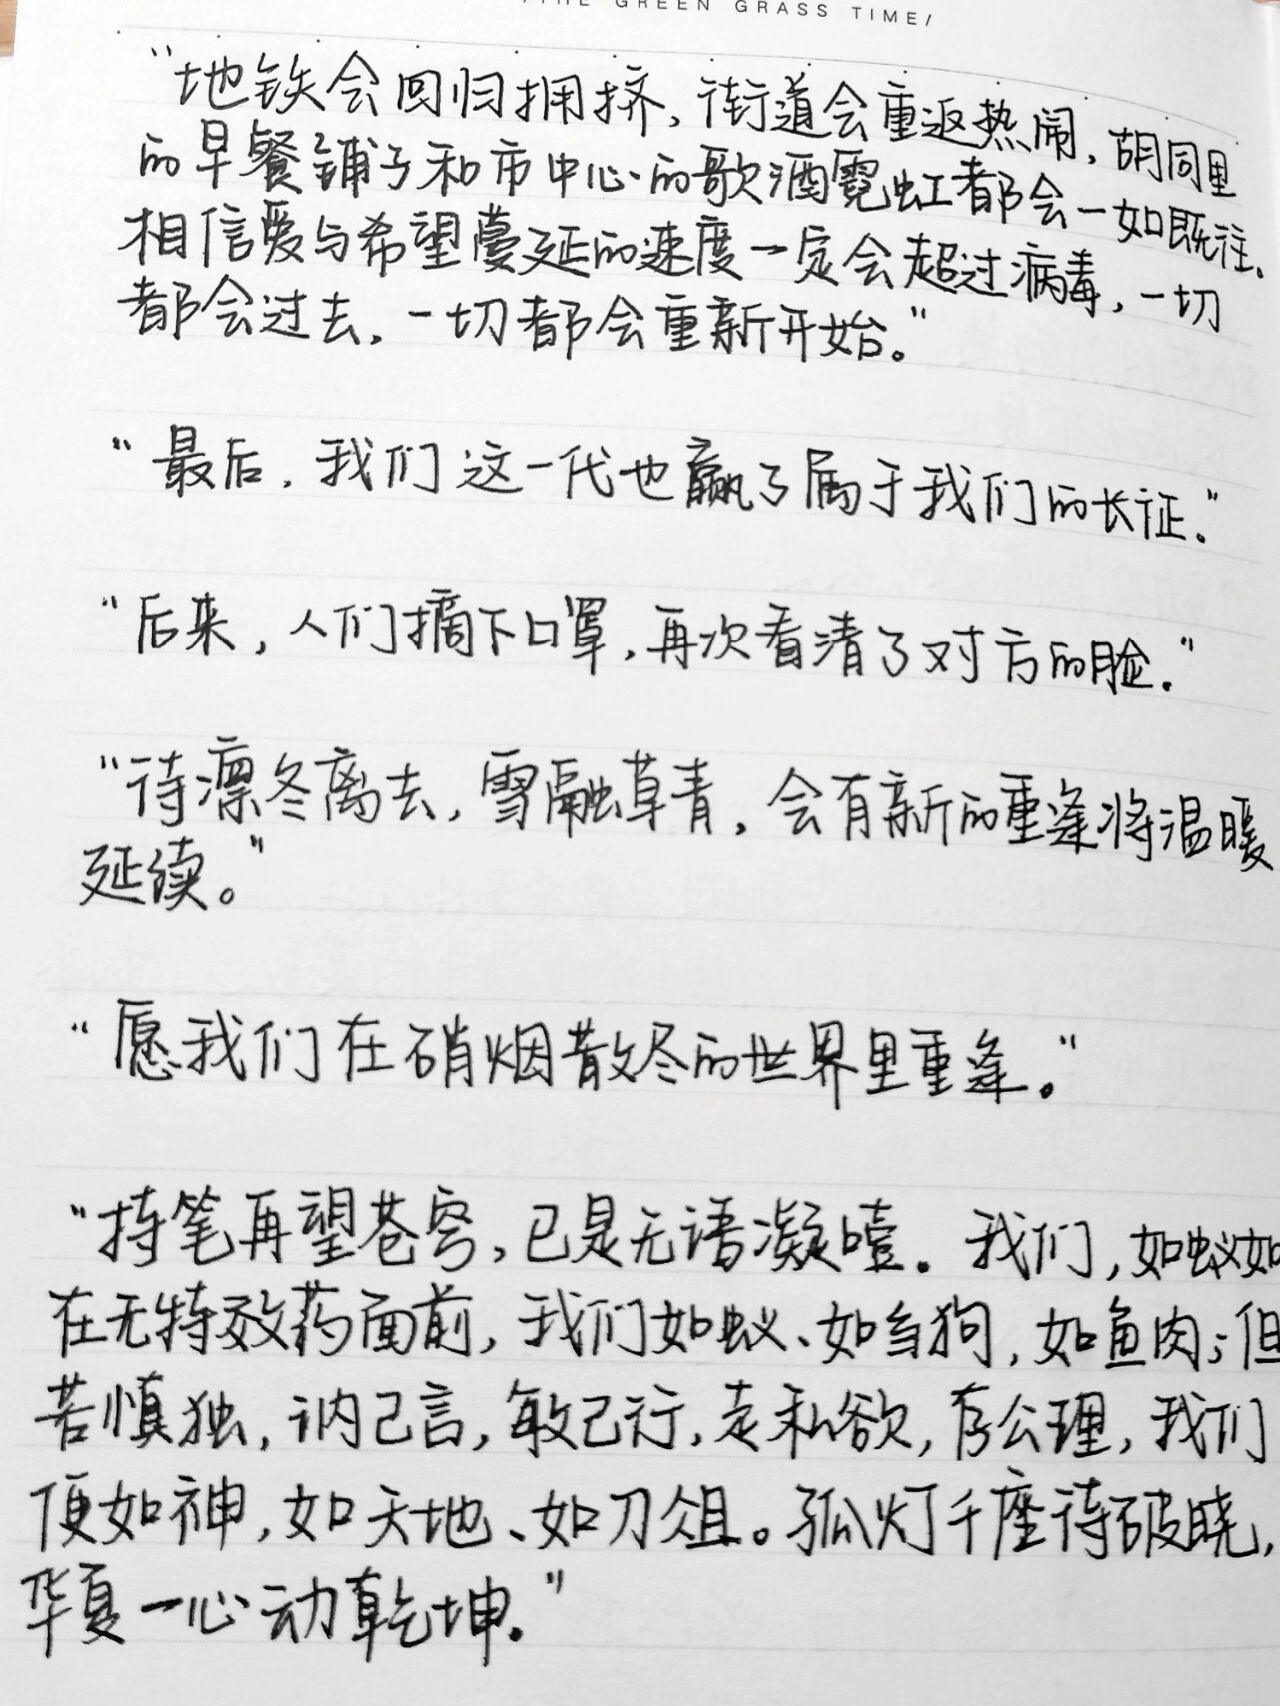 THE GREEN GRASS TIME/
“地铁会回归拥挤，街道会重返热闹，胡同里
的早餐铺子和市中心的歌酒霓虹都会一如既往。
相信爱与希望蔓延的速度一定会超过病毒，一切
都会过去，一切都会重新开始。”
“最后，我们这一代也赢了属于我们的长征。”
“后来，人们摘下口罩，再次看清了对方的脸。”
“待凛冬离去，雪融草青，会有新的重逢将温暖
延续。”
“愿我们在硝烟散尽的世界里重逢。”
“持笔再望苍穹，已是无语凝噎。我们，如蚁如
在无特效药面前，我们如蚁、如刍狗，如鱼肉；但
若慎独，讷己言，敏己行，走私欲，存公理，我们
便如神，如天地、如刀俎。孤灯千座待破晓，
华夏一心动乾坤。”